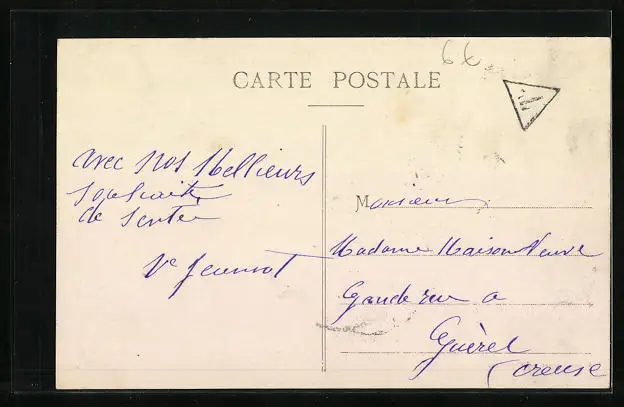 CARTE POSTALE
66
avec nos Mellieurs
Souhaite
de Sente
Ve Jeunnot
Monsieur
Madame Maison Neuve
Gande rue a
Guèret
Creuse